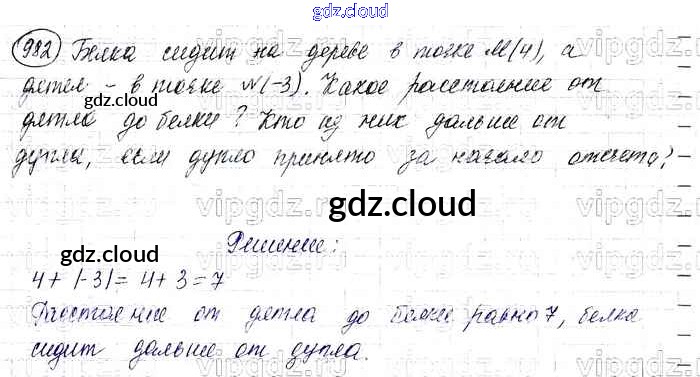 gdz.cloud
982 Белка сидит на дереве в точке M(4), а
дятел - в точке N(-3). Какое расстояние от
дятла до белки? Кто из них дальше от
дупла, если дупло принято за начало отсчета?
gdz.cloud
gdz.cloud
gdz.cloud
Решение:
4+|-3|=4+3=7
Расстояние от дятла до белки равно 7, белка
сидит дальше от дупла.